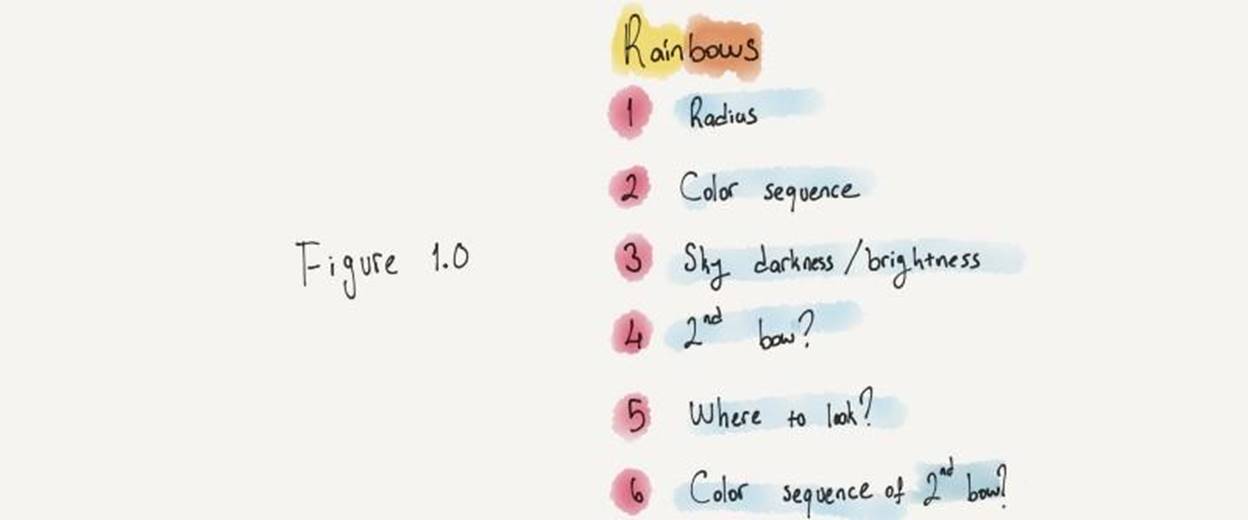 Rainbows
1 Radius
2 Color sequence
3 Sky darkness/brightness
Figure 1.0
4 2nd bow?
5 Where to look?
6 Color sequence of 2nd bow?